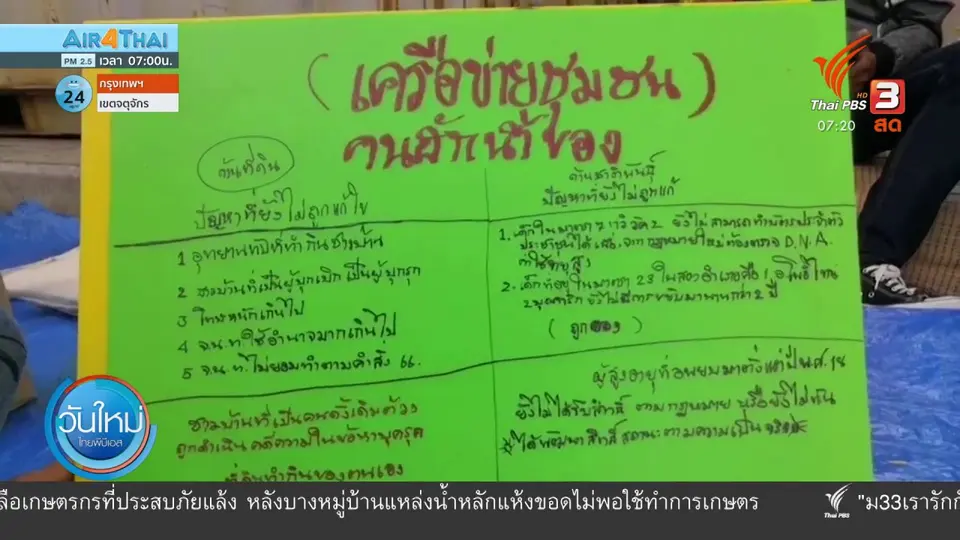 AIR4THAI
PM 2.5 เวลา 07:00น.
24
กรุงเทพฯ
เขตจตุจักร
Thai PBS HD 3
07:20 สด
(เครือข่ายชุมชน)
คนลักน้ำของ
ด้านที่ดิน
ปัญหาที่ยังไม่ถูกแก้ไข
1 อุทยานทับที่ทำกินชาวบ้าน
2 ชาวบ้านที่เป็นผู้บุกเบิกเป็นผู้บุกรุก
3 โทษหนักเกินไป
4 จ.น.ท.ใช้อำนาจมากเกินไป
5 จ.น.ท.ไม่ยอมทำตามคำสั่ง 66.
ชาวบ้านที่เป็นคนดั้งเดิมต้อง
ถูกดำเนินคดีความในข้อหาบุกรุก
ที่ดินทำกินของตนเอง
ด้านชาติพันธุ์
ปัญหาที่ยังไม่ถูกแก้
1. เด็กในมาตรา 7 ยังไม่สามารถทำบัตรประจำตัว
ประชาชนได้ กฎหมายใหม่ต้องตรวจ D.N.A.
ค่าใช้จ่ายสูง
2. เด็กที่อยู่ในมาตรา 23 ในสองอำเภอคือ 1.
2. ยังไม่มีการขยับมานานกว่า 2 ปี
ผู้สูงอายุที่อพยพมาตั้งแต่ปี พ.ศ. 18
ยังไม่ได้รับสิทธิ์ ตามกฎหมาย หรือยังไม่ทัน
ได้พัฒนาสิทธิ์ สถานะตามความเป็นจริง
วันใหม่
ไทยพีบีเอส
ลือเกษตรกรที่ประสบภัยแล้ง หลังบางหมู่บ้านแหล่งน้ำหลักแห้งขอดไม่พอใช้ทำการเกษตร
Thai PBS
"ม33เรารักกั